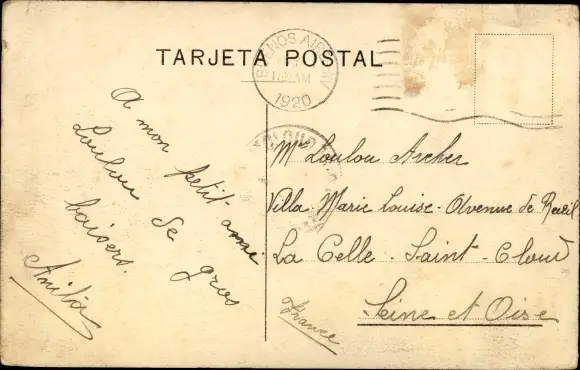 TARJETA POSTAL
BUENOS AIRES
11 AM
1920
A mon petit ami
Loulou de gros
baisers.
Anita
Mr Loulou Archer
Villa Marie Louise - Avenue de Rueil
La Celle - Saint - Cloud
Seine et Oise
France